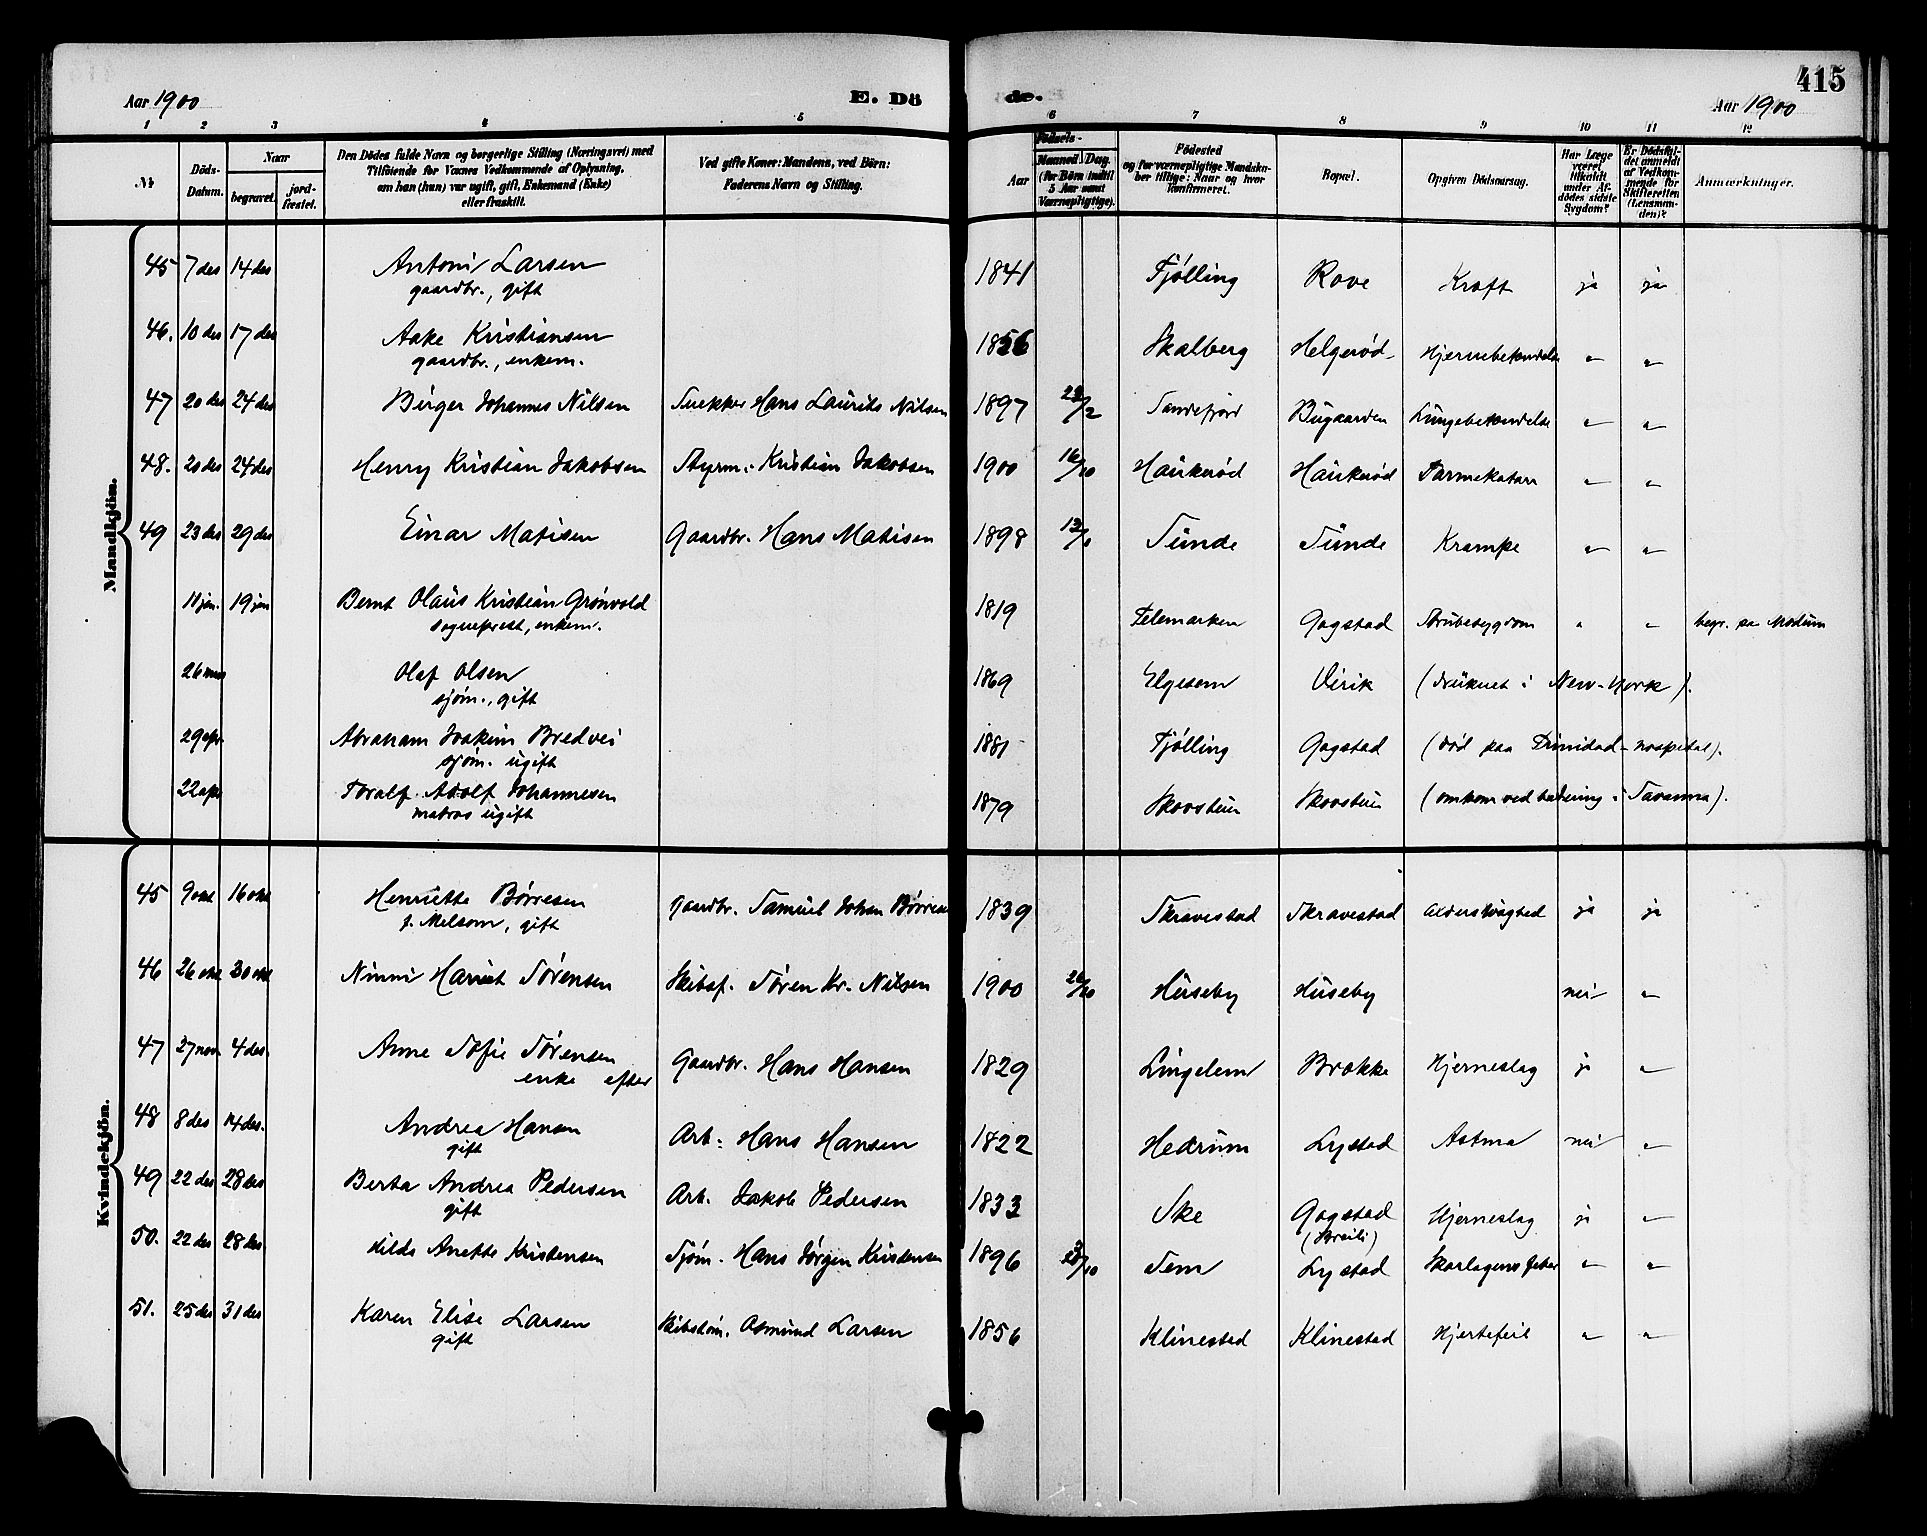 415
Aar 1900
E. Dö
de.
Aar 1900
1 2 3 4 5 6 7 8 9 10 11 12
№
Döds-
Datum.
Naar
begravet.
jord-
fæstet.
Den Dödes fulde Navn og borgerlige Stilling (Næringsvei) med
Tilföiende for Voxnes Vedkommende af Oplysning,
om han (hun) var ugift, gift, Enkemand (Enke)
eller fraskilt.
Ved gifte Koner: Mandens, ved Börn:
Faderens Navn og Stilling.
Födsels-
Aar
Maaned Dag.
(for Börn indtil
5 Aar samt
Værnepligtige).
Födested
og for værnepligtige Mandska-
ber tillige: Naar og hvor
konfirmeret.
Bopæl.
Opgiven Dödsaarsag.
Har Læge
været
tilkaldt
under Af-
dödes sidste
Sygdom?
Er Dödsfal-
det anmeldt
af Vedkom-
mende for
Skifteretten
(Lensman-
den)?
Anmærkninger.
Mandkjön.
45 7 des 14 des Antoni Larsen 1841 Tjølling Rove Kræft ja ja
gaardbr., gift
46. 10 des 17 des Aake Kristiansen 1856 Skalberg Helgerød Hjernebetændelse " "
gaardbr., enkem.
47 20 des 24 des Birger Johannes Nilsen Snekker Hans Laurits Nilsen 1897 /2 Sandefjord Bugaarden Lungebetændelse " "
48. 20 des 24 des Henry Kristian Jakobsen Styrm. Kristian Jakobsen 1900 16/10 Haukerød Haukerød Tarmekatarr " "
49 23 des 29 des Einar Matisen Gaardbr. Hans Matisen 1898 Sunde Sunde Krampe " "
11 jan. 19 jan Bernt Olaus Kristian Grønvold 1819 Telemarken Gogstad Strubesygdom " " begr. paa Modum
sogneprest, enkem.
26 Olaf Olsen 1869 Elgesem Virik (druknet i New-York).
sjøm., gift
29 apr. Abraham Joakim Bredvei 1881 Tjølling Gogstad (død paa Trinidad-hospital).
sjøm. ugift
22 apr Toralf Adolf Johannesen 1879 Skorstein Skorstein (omkom ved badning i Savanna).
matros ugift
Kvindekjön.
45 9 okt 16 okt Henriette Børresen Gaardbr. Samuel Johan Børresen 1839 Skravestad Skravestad Alderssvaghed ja ja
f. Melsom, gift
46 26 okt 30 okt Ninni Hariet Sørensen Skibsf. Søren Kr. Nilsen 1900 26/10 Huseby Huseby nei "
47 27 nov 4 des. Anne Sofie Sørensen Gaardbr. Hans Hansen 1829 Lingelem Brokke Hjerneslag ja "
enke efter
48 8 des 14 des. Andrea Hansen Arb. Hans Hansen 1822 Hedrum Lystad Astma nei "
gift
49 22 des 28 des Berta Andrea Pedersen Arb. Jakob Pedersen 1833 Ske Gogstad Hjerneslag ja "
gift (Breili)
50. 22 des 28 des Hilda Anette Kristensen Sjøm. Hans Jørgen Kristensen 1896 /10 Sem Lystad Skarlagensfeber " "
51. 25 des 31 des Karen Elise Larsen Skibstøm. Asmund Larsen 1856 Klinestad Klinestad Hjertefeil " "
gift